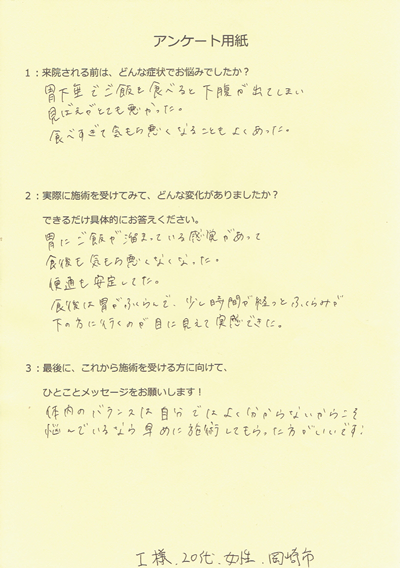 アンケート用紙
1：来院される前は、どんな症状でお悩みでしたか？
胃下垂でご飯を食べると下腹が出てしまい
見ばえがとても悪かった。
食べすぎて気もち悪くなることもよくあった。
2：実際に施術を受けてみて、どんな変化がありましたか？
できるだけ具体的にお答えください。
胃にご飯が溜まっている感覚があって
食後も気もち悪くなくなった。
便通も安定してた。
食後は胃がふくらんで、少し時間が経つとふくらみが
下の方に行くのが目に見えて実感できた。
3：最後に、これから施術を受ける方に向けて、
ひとことメッセージをお願いします！
体内のバランスは自分ではよく分からないからこそ
悩んでいるなら早めに施術してもらった方がいいです！
I様、20代、女性、岡崎市